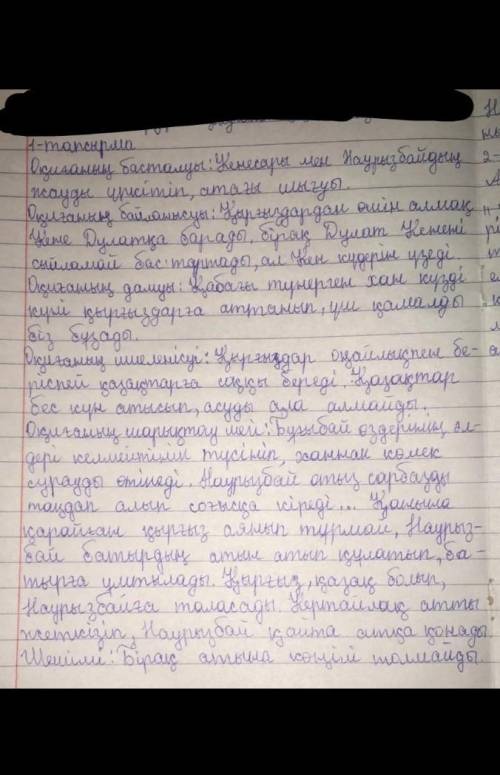 1-тапсырма
Оқиғаның басталуы: Кенесары мен Наурызбайдың
жауды үркітіп, атағы шығуы.
Оқиғаның байланысуы: Қырғыздардан өшін алмақ
Кене Дулатқа барады, бірақ Дулат Кенені
сыйламай бас тартады, ал Кен күдерін үзеді.
Оқиғаның дамуы: Қабағы түнерген хан күзді
күні қырғыздарға аттанып, үш қамалды
біз бұзады.
Оқиғаның шиеленісуі: Қырғыздар оңайлықпен бе-
ріспей қазақтарға соққы береді. Қазақтар
бес күн атысып, асуды ала алмайды.
Оқиғаның шарықтау шегі: Бұғыбай өздерінің әл-
дері келмейтінін түсініп, ханнан көмек
сұрауды өтінеді. Наурызбай отыз сарбазды
таңдап алып соғысқа кіреді... Қанына
қарайған қырғыз аянып тұрмай, Наурыз-
бай батырдың атын атып құлатып, ба-
тырға ұмтылады. Қырғыз, қазақ болып,
Наурызбайға таласады. Көртайлақ атты
жеткізіп, Наурызбай қайта атқа қонады
Шешімі: Бірақ атына көңілі толмайды.